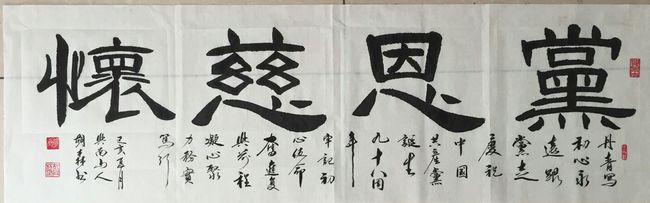 黨恩慈懷
丹青寫
初心永
遠跟
黨走
慶祝
中國
共產黨
誕生
九十八周
年
牢記初
心使命
奮進复
興前程
凝心聚
力務實
篤行
己亥夏月
山人
森书